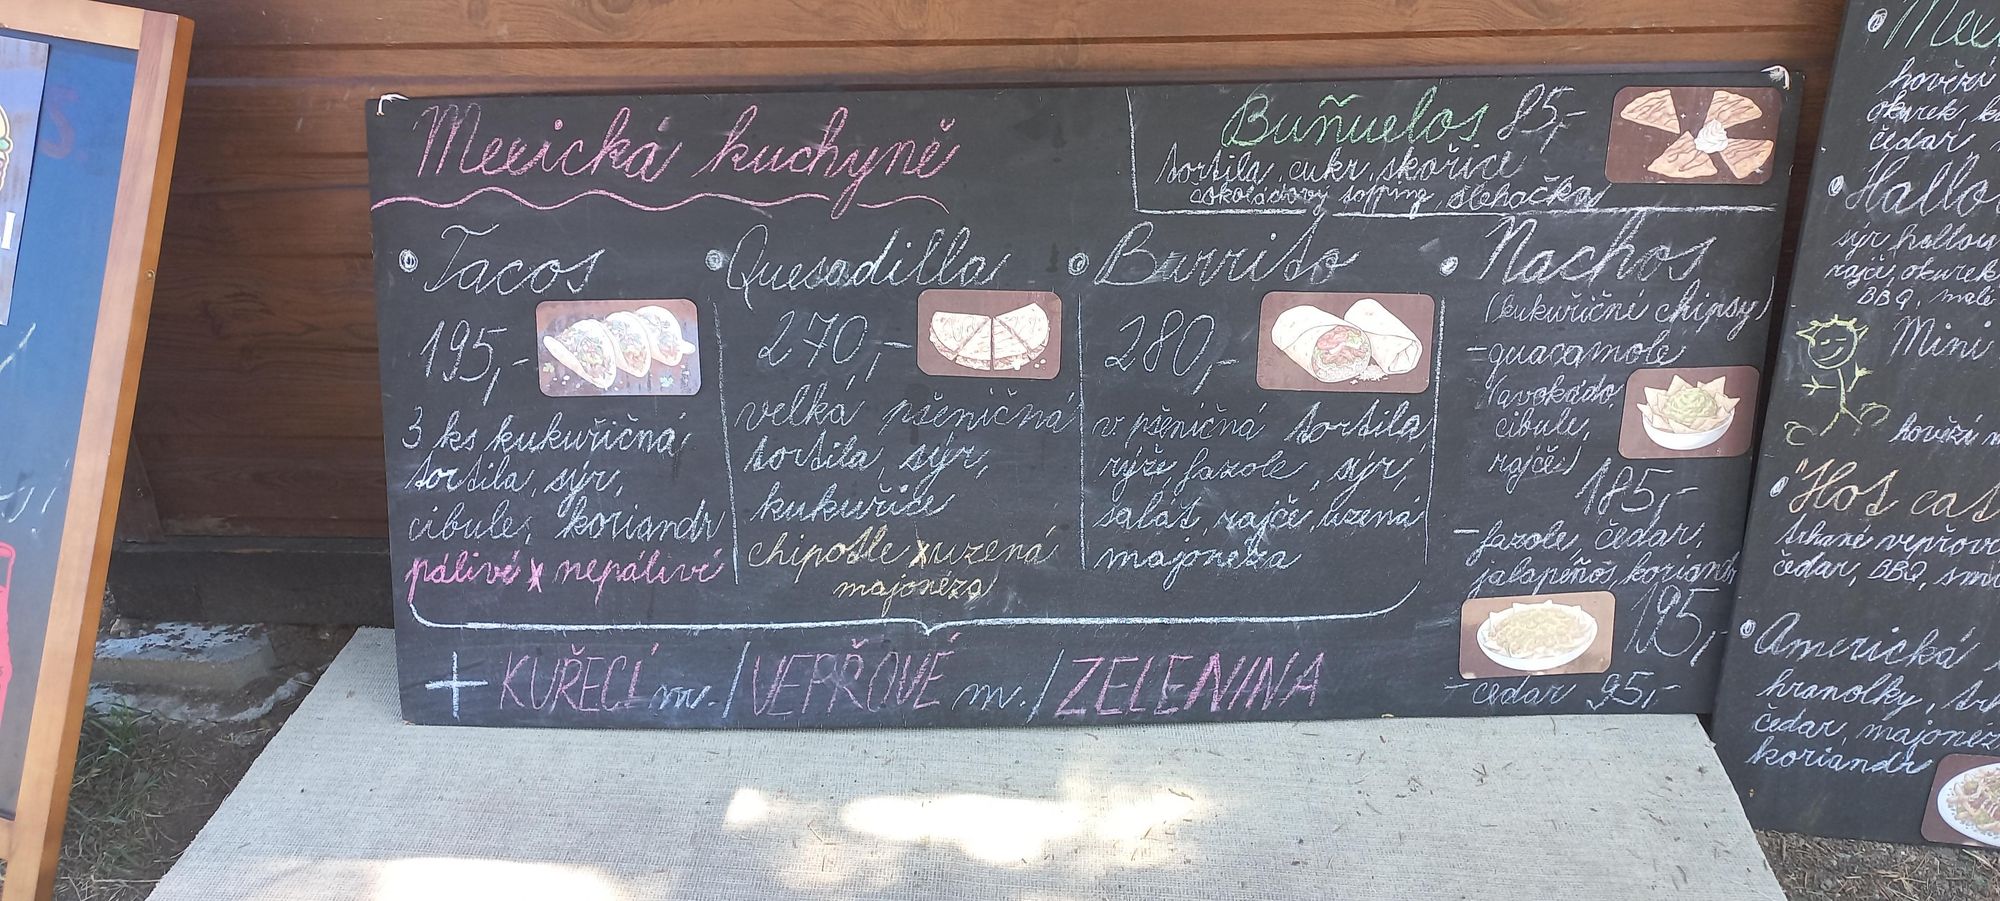 Mexická kuchyně
Buñuelos 85,-
tortila, cukr, skořice
čokoládový topping, šlehačka
Tacos
195,-
3 ks kukuřičná
tortila, sýr,
cibule, koriandr
pálivé x nepálivé
Quesadilla
270,-
velká pšeničná
tortila, sýr,
kukuřice
chipotle x uzená
majonéza
Burrito
280,-
v. pšeničná tortila,
rýže, fazole, sýr,
salát, rajče, uzená
majonéza
+ KUŘECÍ m. / VEPŘOVÉ m. / ZELENINA
Nachos
(kukuřičné chipsy)
- guacamole
(avokádo
cibule,
rajče)
185,-
- fazole, čedar,
jalapeños, koriandr
195,-
- čedar 95,-
hovězí
okurek,
čedar
sýr
rajče, okurek
BBQ, malé
Mini
hovězí
"Hot
trhané vepřové
čedar, BBQ,
Americká
hranolky,
čedar,
koriandr